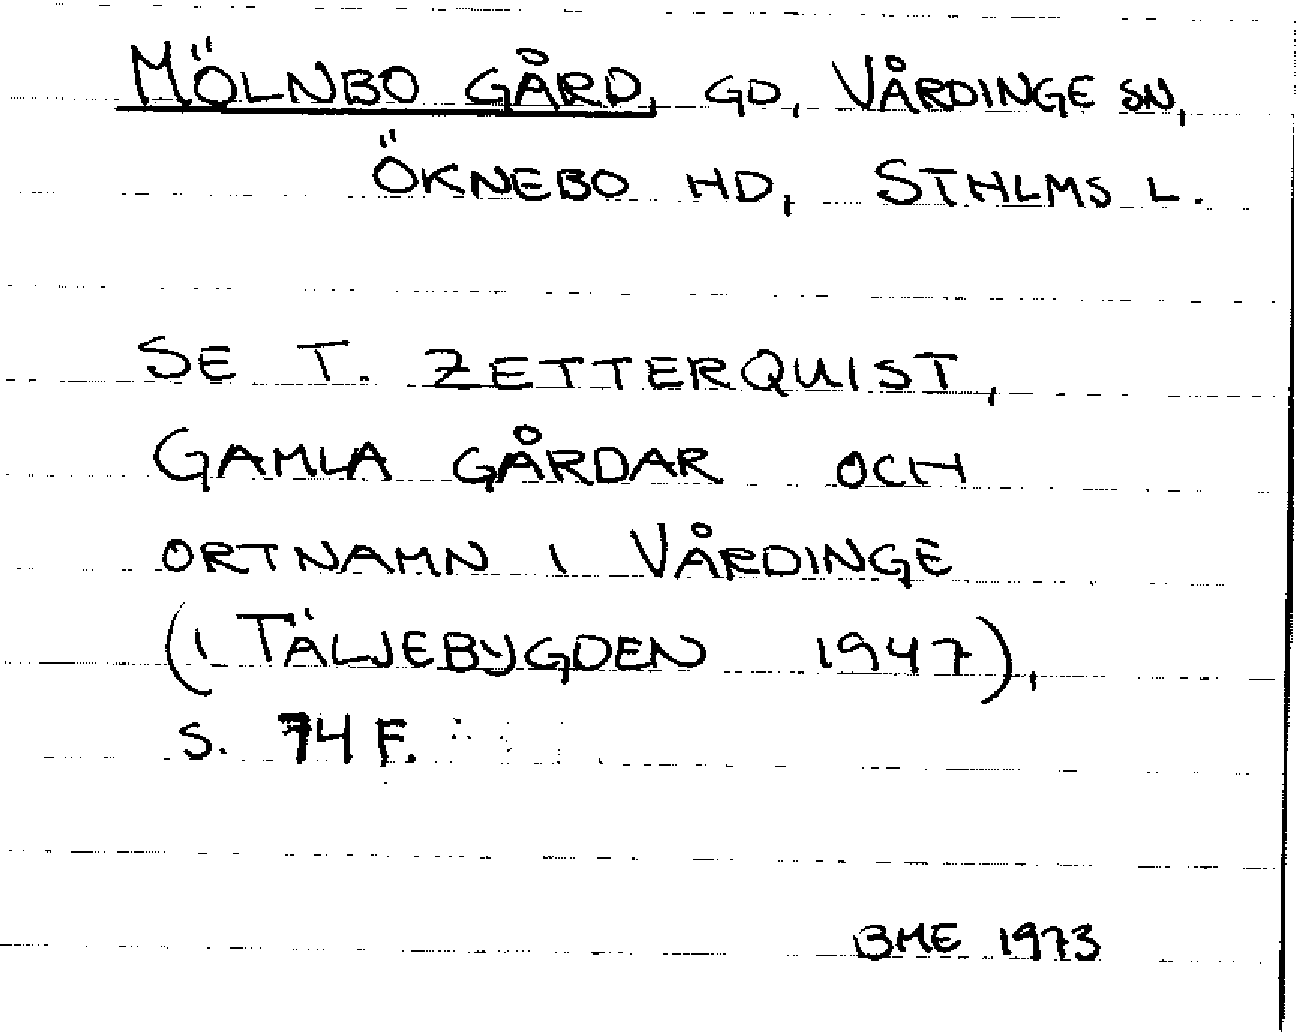 MÖLNBO GÅRD, GD, VÅRDINGE SN,
ÖKNEBO HD, STHLMS L.
SE T. ZETTERQUIST,
GAMLA GÅRDAR OCH
ORTNAMN I VÅRDINGE
(I TÄLJEBYGDEN 1947),
S. 74 F.
BME 1973